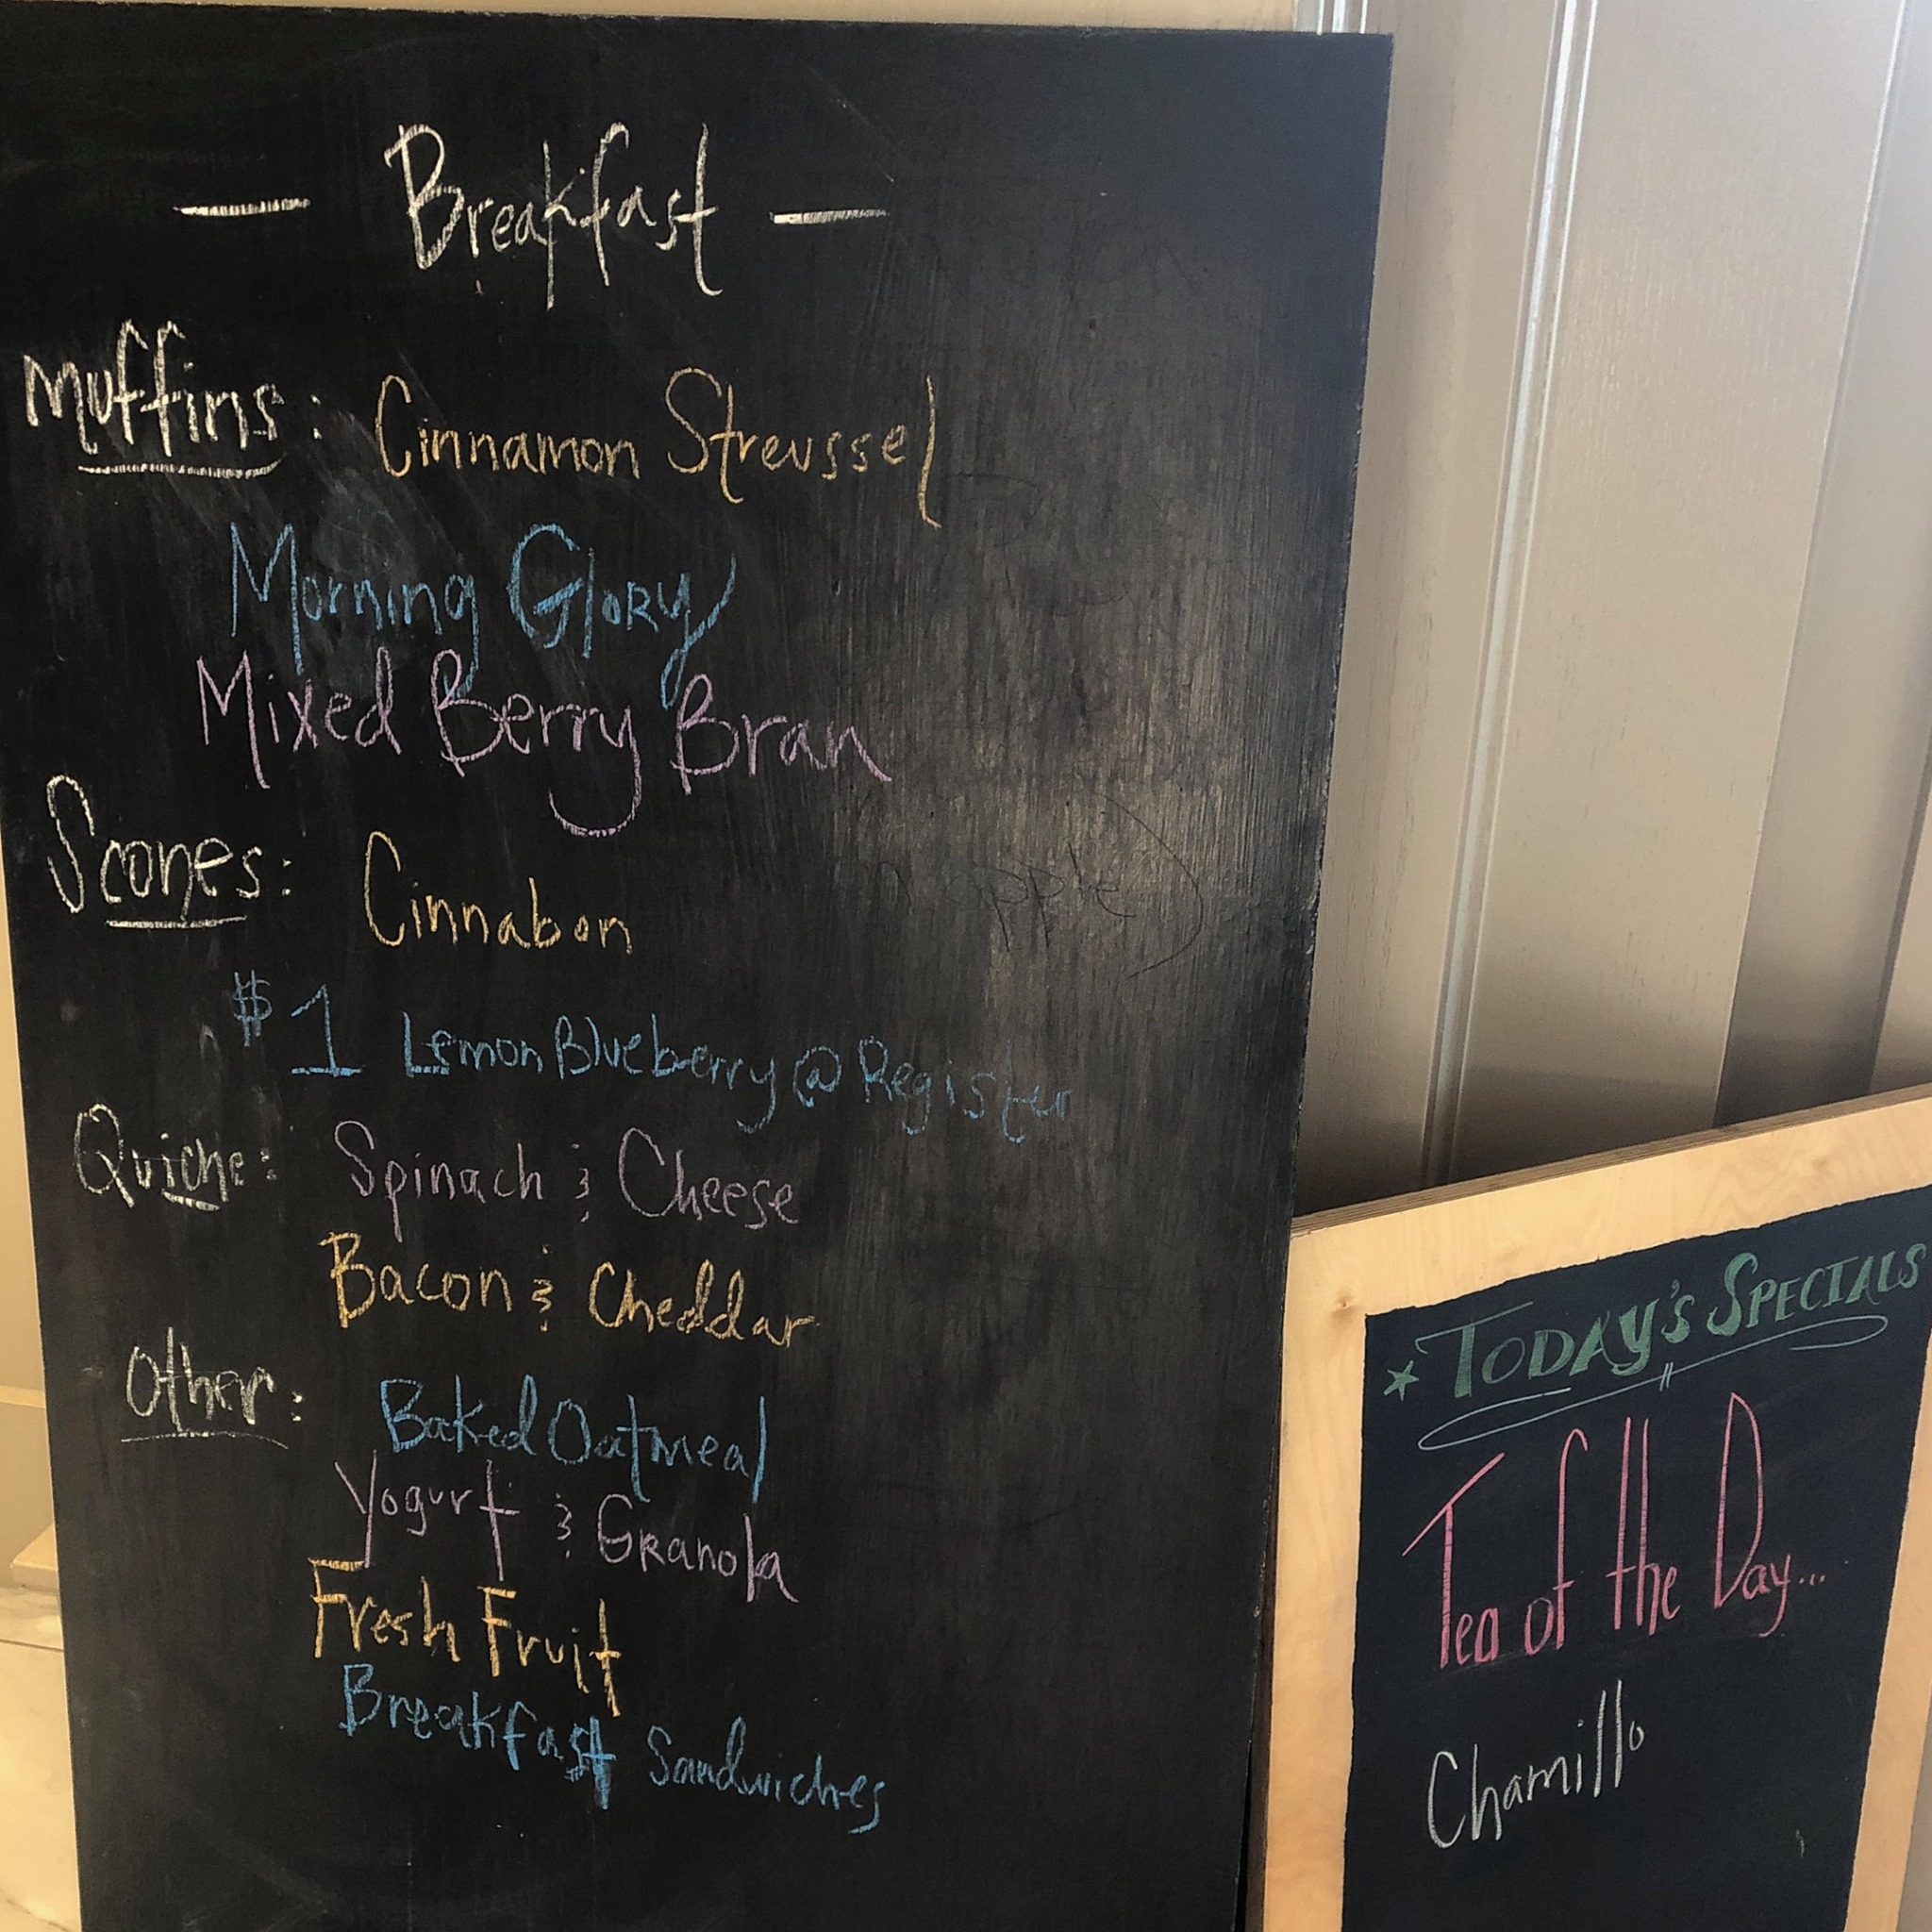 — Breakfast —
Muffins: Cinnamon Streussel
Morning Glory
Mixed Berry Bran
Scones: Cinnabon
$1 Lemon Blueberry @ Register
Quiche: Spinach & Cheese
Bacon & Cheddar
Other: Baked Oatmeal
Yogurt & Granola
Fresh Fruit
Breakfast Sandwiches
★ TODAY'S SPECIALS
Tea of the Day...
Chamillo